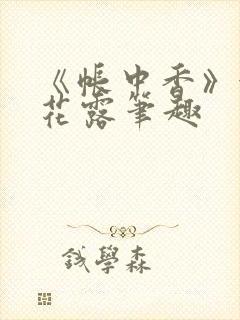 《帳中香》
花露筆趣
錢學森